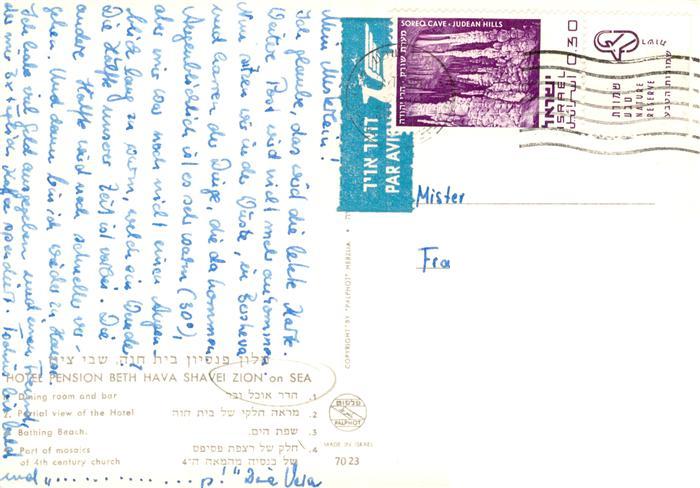 Mein Misktein!
Ich glaube, das wird die letzte Karte.
Weitere Post wird nicht mehr ankommen.
Nun sitzen wir in der Wüste, in Beersheva
und harren der Dinge, die da kommen.
Augenblicklich ist es sehr warm (30°),
aber mir war noch nicht einen Augen-
blick lang zu warm, welch ein Wunder!
Die Hälfte unserer Zeit ist vorbei. Die
andere Hälfte wird noch schneller ver-
gehen. Und dann bin ich wieder zu Hause
Ich habe viel Geld ausgegeben und einen Freund,
der mir Kaffee spendiert.
und „..........p!" Die Vera
SOREQ CAVE - JUDEAN HILLS
מערת שורק - הרי יהודה
ישראל
ISRAEL
0.30
שמורות
טבע
NATURE
RESERVE
שמורות הטבע
דואר אויר
PAR AVION
Mister
Fra
COPYRIGHT BY "PALPHOT" HERZLIA
מלון פנסיון בית חוה, שבי ציון
HOTEL PENSION BETH HAVA SHAVEI ZION on SEA
1. Dining room and bar
חדר אוכל ובר
2. Partial view of the Hotel
מראה חלקי של בית חוה
3. Bathing Beach.
שפת הים.
4. Part of mosaics
of 4th century church
חלק של רצפת פסיפס
של כנסיה מהמאה ה-4
פלפוט
PALPHOT
MADE IN ISRAEL
7023